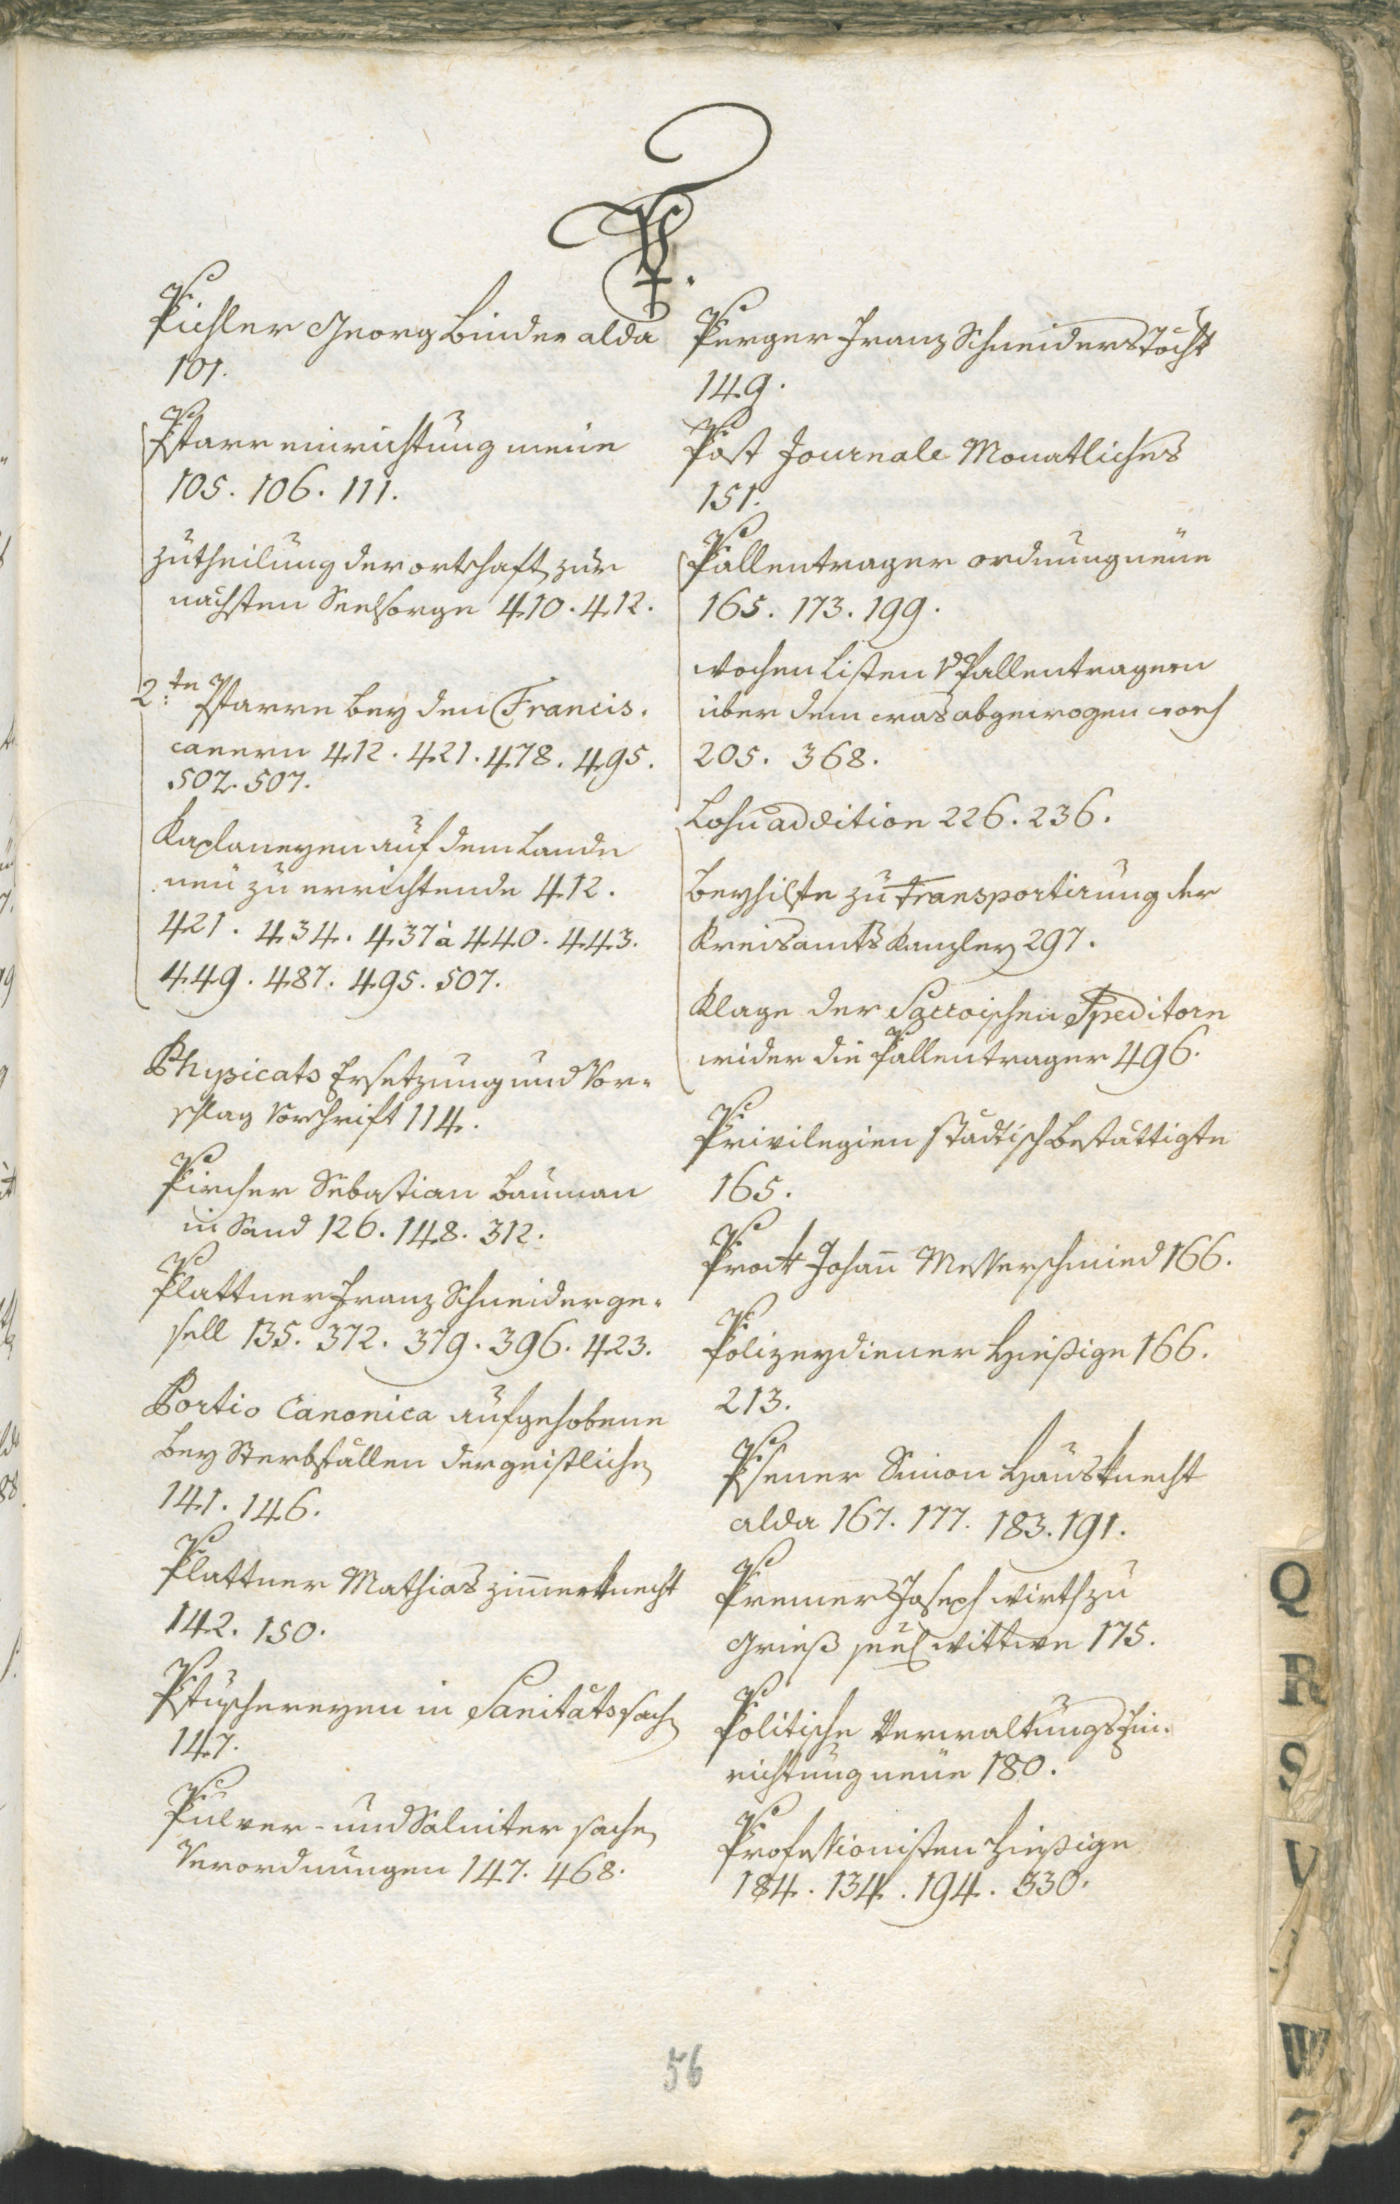 P.
Pichler Georg Binder alda
101.
Pfarr einrichtung neüe
105. 106. 111.
Zutheilung der ortschaft zur
nächsten Seelsorge 410. 412.
2.te Pfarre bey den Francis.
canern 412. 421. 478. 495.
502. 507.
Kaplaneyen auf dem Lande
neü zu errichtende 412.
421. 434. 437 à 440. 443.
449. 487. 495. 507.
Physicats Ersetzung und Vor-
schlag Vorschrift 114.
Pircher Sebastian Bauman
in Sand 126. 148. 312.
Plattner Franz Schneiderge-
sell 135. 372. 379. 396. 423.
Portio Canonica aufgehobene
bey Sterbfällen der geistlichen
141. 146.
Plattner Mathias Zimmerknecht
142. 150.
Pfuschereyen in Sanitäts sachen
147.
Pulver- und Saliniter sachen
Verordnungen 147. 468.
Perger Franz Schneiders Tocht
149.
Post Journale Monatliches
151.
Pallentrager ordnung neüe
165. 173. 199.
Wochen Listen Pallentragern
über dem was abgewogen
205. 368.
Lohn addition 226. 236.
Beyhilfe zu Transportirung der
Kreisamts Kanzley 297.
Klage der Speditorn
wider die Pallentrager 496.
Privilegien städtisch bestättigte
165.
Johann Messerschmied 166.
Polizeydiener hießige 166.
213.
Psener Simon Hausknecht
alda 167. 177. 183. 191.
Premer Joseph wirth zu
Grieß seel wittwe 175.
Politische Verwaltungs Ein-
richtung neüe 180.
Professionisten hießige
184. 134. 194. 330.
56
Q
R
S
V
W